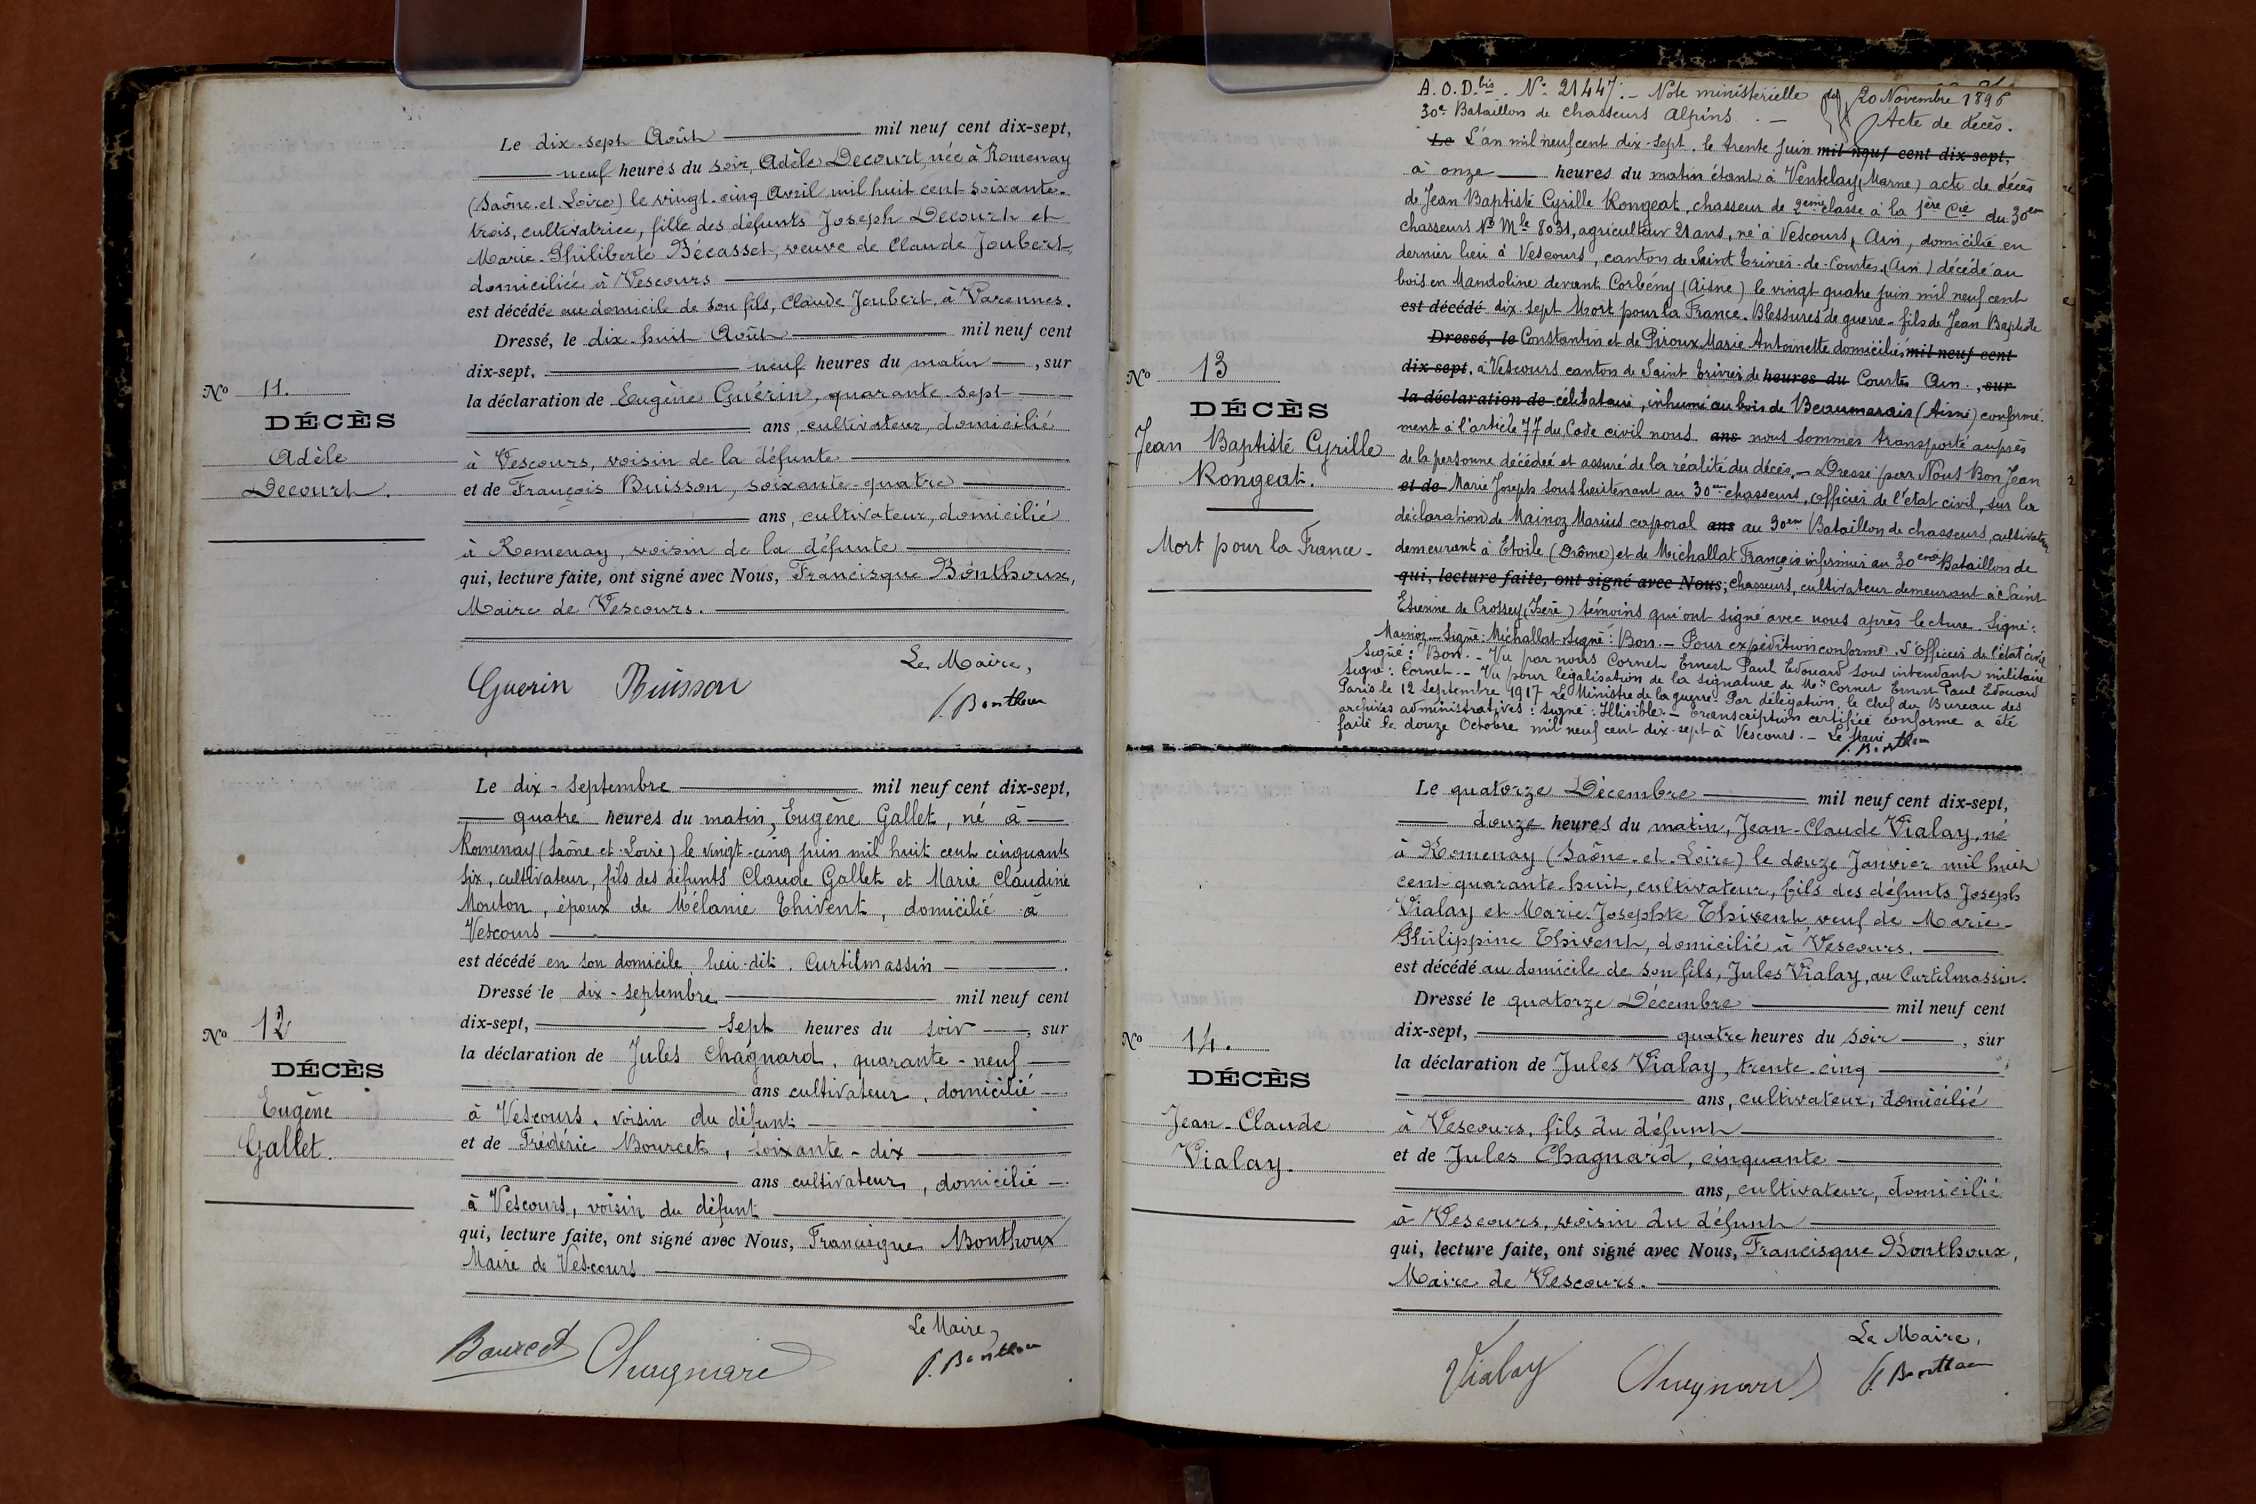 Le dix-sept Août mil neuf cent dix-sept,
neuf heures du soir, Adèle Decourt, née à Romenay
(Saône-et-Loire) le vingt-cinq Avril mil huit cent soixante-
trois, cultivatrice, fille des défunts Joseph Decourt et
Marie-Philiberte Bécasset, veuve de Claude Joubert,
domiciliée à Vescours
est décédée au domicile de son fils, Claude Joubert, à Varennes.
Dressé, le dix-huit Août mil neuf cent
dix-sept, neuf heures du matin, sur
la déclaration de Eugène Guérin, quarante-sept
ans, cultivateur, domicilié
à Vescours, voisin de la défunte
et de François Buisson, soixante-quatre
ans, cultivateur, domicilié
à Romenay, voisin de la défunte
qui, lecture faite, ont signé avec Nous, Francisque Bonthoux,
Maire de Vescours.
Le Maire,
Guerin Buisson
f. Bonthoux
No 11.
DÉCÈS
Adèle
Decourt.
Le dix-septembre mil neuf cent dix-sept,
quatre heures du matin, Eugène Gallet, né à
Romenay (Saône et Loire) le vingt-cinq juin mil huit cent cinquante
six, cultivateur, fils des défunts Claude Gallet et Marie Claudine
Mouton, époux de Mélanie Thivent, domicilié à
Vescours
est décédé en son domicile, lieu-dit. Curtilmassin.
Dressé le dix-septembre mil neuf cent
dix-sept, sept heures du soir, sur
la déclaration de Jules Chagnard, quarante-neuf
ans cultivateur, domicilié
à Vescours, voisin du défunt
et de Frédéric Bourcet, soixante-dix
ans cultivateur, domicilié
à Vescours, voisin du défunt
qui, lecture faite, ont signé avec Nous, Francisque Bonthoux
Maire de Vescours
Le Maire,
Bourcet Chagnard
f. Bonthoux
No 12
DÉCÈS
Eugène
Gallet.
A.O.D.bis. No 21447.- Note ministérielle du 20 Novembre 1896
30e Bataillon de chasseurs Alpins. - Acte de décès.
Le L'an mil neuf cent dix-sept, le trente Juin mil neuf cent dix-sept,
à onze heures du matin étant à Ventelay (Marne) acte de décès
de Jean Baptiste Cyrille Rongeat, chasseur de 2ème classe à la 1ère Cie du 30em
chasseurs No Mle 8031, agriculteur 21 ans, né à Vescours, Ain, domicilié en
dernier lieu à Vescours, canton de Saint Trivier-de-Courtes, (Ain) décédé au
bois en Mandoline devant Corbény (Aisne) le vingt quatre juin mil neuf cent
est décédé dix sept Mort pour la France. Blessures de guerre - fils de Jean Baptiste
Dressé, le Constantin et de Piroux Marie Antoinette domiciliés mil neuf cent
dix-sept, à Vescours canton de Saint Trivier de heures du Courtes Ain., sur
la déclaration de célibataire, inhumé au bois de Beaumarais (Aisne) conformé-
ment à l'article 77 du Code civil nous ans nous sommes transporté auprès
de la personne décédée et assuré de la réalité du décès. - Dressé par Nous Bon Jean
et de Marie Joseph sous lieutenant au 30em chasseurs, officier de l'état civil, sur la
déclaration de Mainoz Marius caporal ans au 30em Bataillon de chasseurs, cultivateur
demeurant à Etoile (Drôme) et de Michallat François infirmier au 30em Bataillon de
qui, lecture faite, ont signé avec Nous, chasseurs, cultivateur demeurant à Saint
Etienne de Crossey (Isère) témoins qui ont signé avec nous après lecture. Signé:
Mainoz - Signé: Michallat - Signé: Bon. - Pour expédition conforme. L'Officier de l'état civil
Signé: Bon. - Vu par nous Cornet Ernest Paul Edouard sous intendant militaire
signé: Cornet. - Vu pour légalisation de la signature de Mr Cornet Ernest Paul Edouard
Paris le 12 Septembre 1917 Le Ministre de la guerre. Par délégation, le chef du Bureau des
archives administratives: signé: Illisible. - Transcription certifiée conforme a été
faite le douze Octobre mil neuf cent dix-sept à Vescours. - Le Maire
f. Bonthoux
No 13
DÉCÈS
Jean Baptiste Cyrille
Rongeat.
Mort pour la France.
Le quatorze Décembre mil neuf cent dix-sept,
douze heures du matin, Jean-Claude Vialay, né
à Romenay (Saône-et-Loire) le douze Janvier mil huit
cent quarante-huit, cultivateur, fils des défunts Joseph
Vialay et Marie-Josephte Thivent, veuf de Marie-
Philippine Thivent, domicilié à Vescours.
est décédé au domicile de son fils, Jules Vialay, au Curtilmassin.
Dressé le quatorze Décembre mil neuf cent
dix-sept, quatre heures du soir, sur
la déclaration de Jules Vialay, trente-cinq
ans, cultivateur, domicilié
à Vescours, fils du défunt
et de Jules Chagnard, cinquante
ans, cultivateur, domicilié
à Vescours, voisin du défunt
qui, lecture faite, ont signé avec Nous, Francisque Bonthoux,
Maire de Vescours.
Le Maire,
Vialay Chagnard
f. Bonthoux
No 14.
DÉCÈS
Jean-Claude
Vialay.